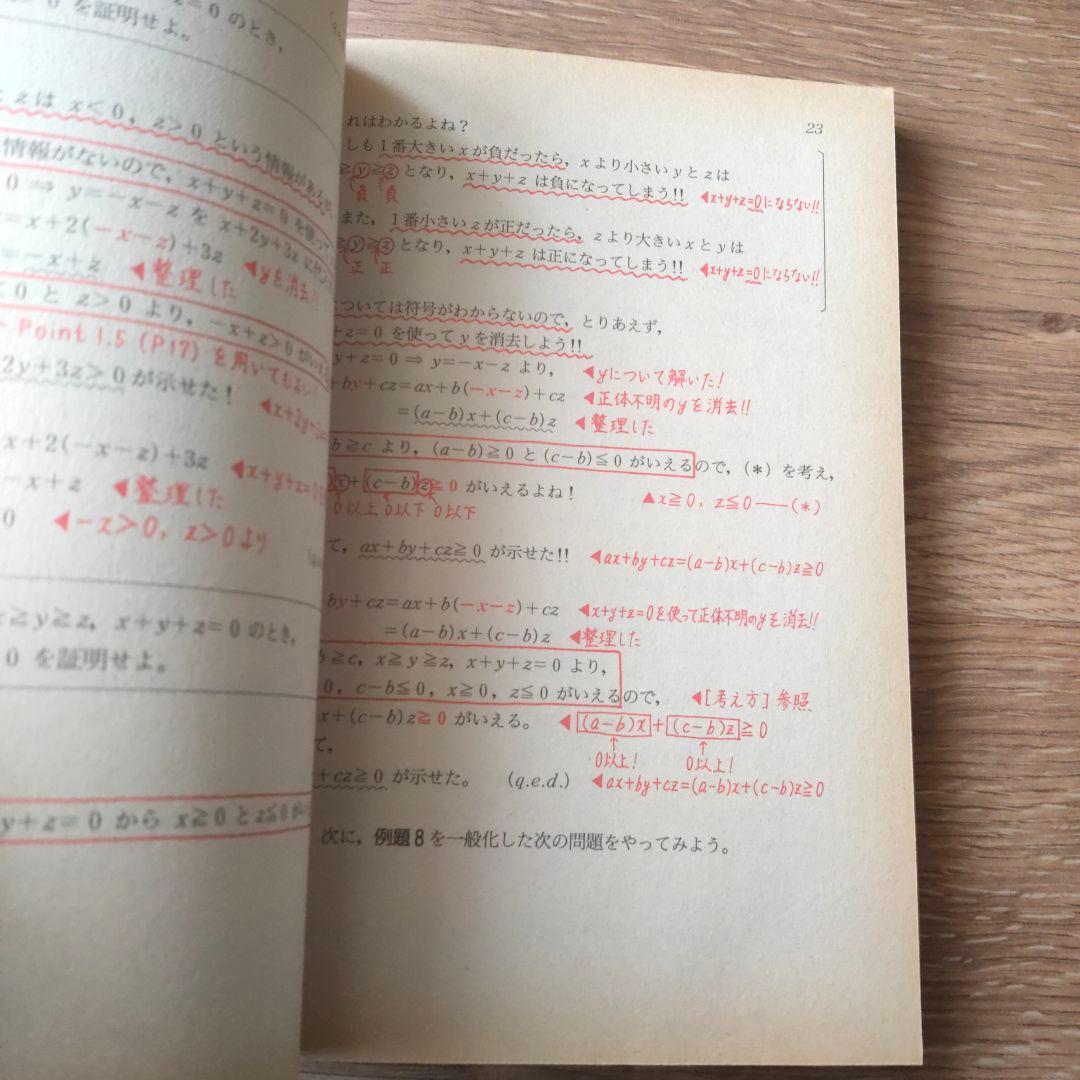 z=0 のとき,
0 を証明せよ。
z は x<0, z>0 という情報が
情報がないので, x+y+z=0 を使って
0 ⟹ y=−x−z を x+2y+3z に
=x+2(−x−z)+3z ◀yを消去!!
=−x+z ◀整理した
<0 と z>0 より, −x+z>0 が
Point 1.5 (P17) を用いてもよい!
2y+3z>0 が示せた!
x+2(−x−z)+3z ◀x+y+z=
−x+z ◀整理した
0 ◀−x>0, z>0より
x≧y≧z, x+y+z=0 のとき,
0 を証明せよ。
y+z=0 から x≧0 と z≦0
23
れはわかるよね?
しも1番大きい x が負だったら, x より小さい y と z は
≧y≧z となり, x+y+z は負になってしまう!! ◀x+y+z=0にならない!!
負 負
また, 1番小さい z が正だったら, z より大きい x と y は
≧y≧z となり, x+y+z は正になってしまう!! ◀x+y+z=0にならない!!
正 正
については符号がわからないので, とりあえず,
+z=0 を使って y を消去しよう!!
y+z=0 ⟹ y=−x−z より, ◀yについて解いた!
+by+cz=ax+b(−x−z)+cz ◀正体不明のyを消去!!
=(a−b)x+(c−b)z ◀整理した
b≧c より, (a−b)≧0 と (c−b)≦0 がいえるので, (*) を考え,
x+(c−b)z≧0 がいえるよね! ▲x≧0, z≦0――(*)
0以上 0以下 0以下
て, ax+by+cz≧0 が示せた!! ◀ax+by+cz=(a−b)x+(c−b)z≧0
by+cz=ax+b(−x−z)+cz ◀x+y+z=0を使って正体不明のyを消去!!
=(a−b)x+(c−b)z ◀整理した
b≧c, x≧y≧z, x+y+z=0 より,
0, c−b≦0, x≧0, z≦0 がいえるので, ◀[考え方]参照
x+(c−b)z≧0 がいえる。 ◀(a−b)x+(c−b)z≧0
↑ ↑
て, 0以上! 0以上!
+cz≧0 が示せた。 (q.e.d.) ◀ax+by+cz=(a−b)x+(c−b)z≧0
次に, 例題8を一般化した次の問題をやってみよう。